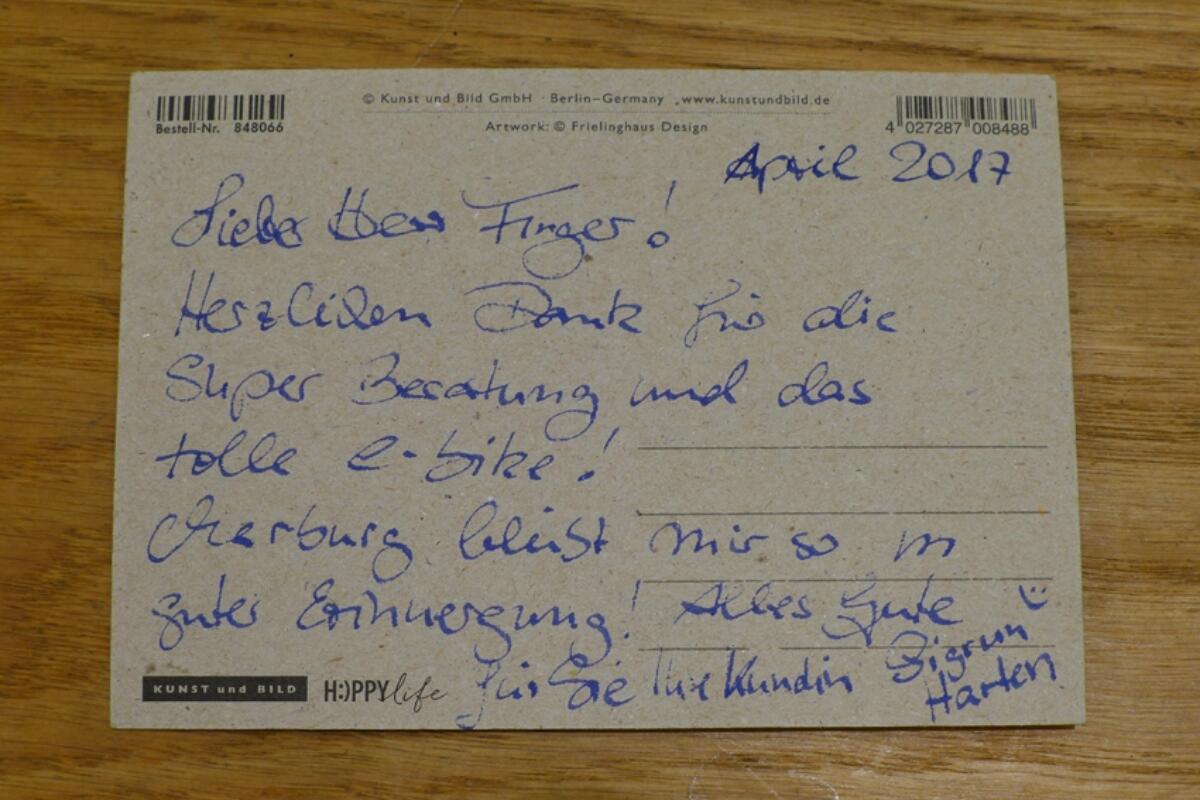 © Kunst und Bild GmbH · Berlin–Germany · www.kunstundbild.de
Bestell-Nr. 848066
Artwork: © Frielinghaus Design
4 027287 008488
April 2017
Lieber Herr Finger!
Herzlichen Dank für die
Super Beratung und das
tolle e-bike!
Marburg bleibt mir so in
guter Erinnerung! Alles Gute
für Sie Ihre Kundin Sigrun
Harten
KUNST und BILD H:)PPY life